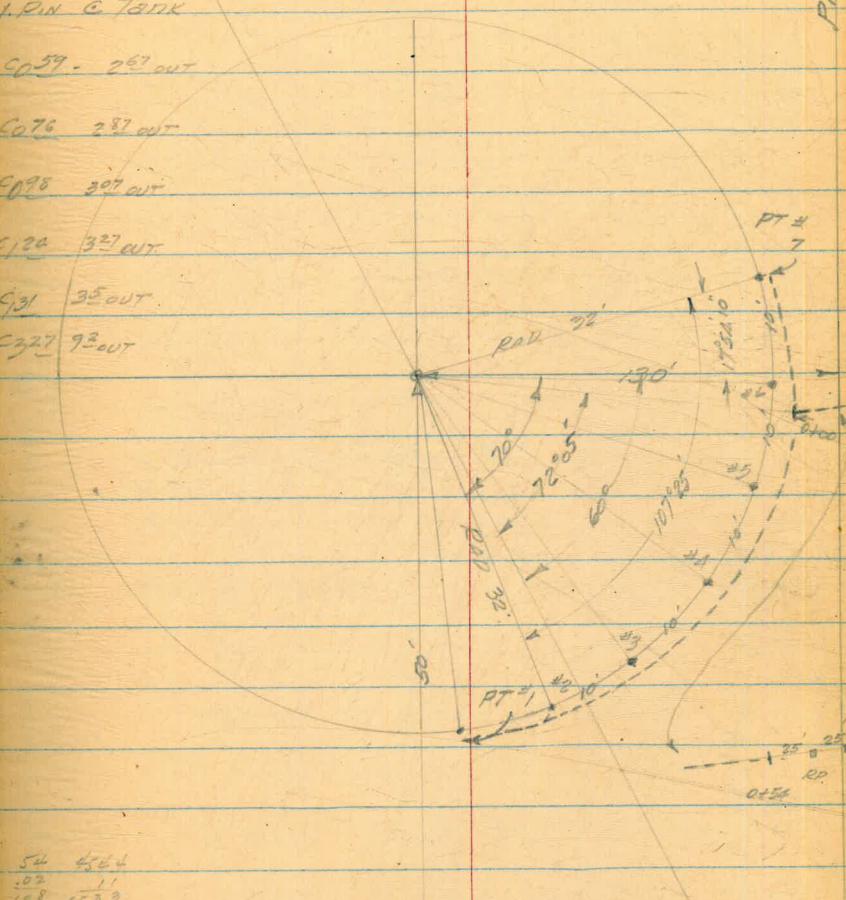 1. PIN @ TANK
C 0 59 - 2 67 OUT
C 0 76 2 87 OUT
C 0 98 3 07 OUT
C 1 20 3 27 OUT
C 1 31 3 5 OUT
C 3 27 9 2 OUT
PT #
7
10'
17°52'10"
RAD 32'
130'
#6
0+00
10'
70°
72°05'
60°
107°25'
#5
10'
#4
RAD 32'
10'
#3
50'
PT #1 #2 10'
25' 25
RP
0+54
54 4544
.02 11